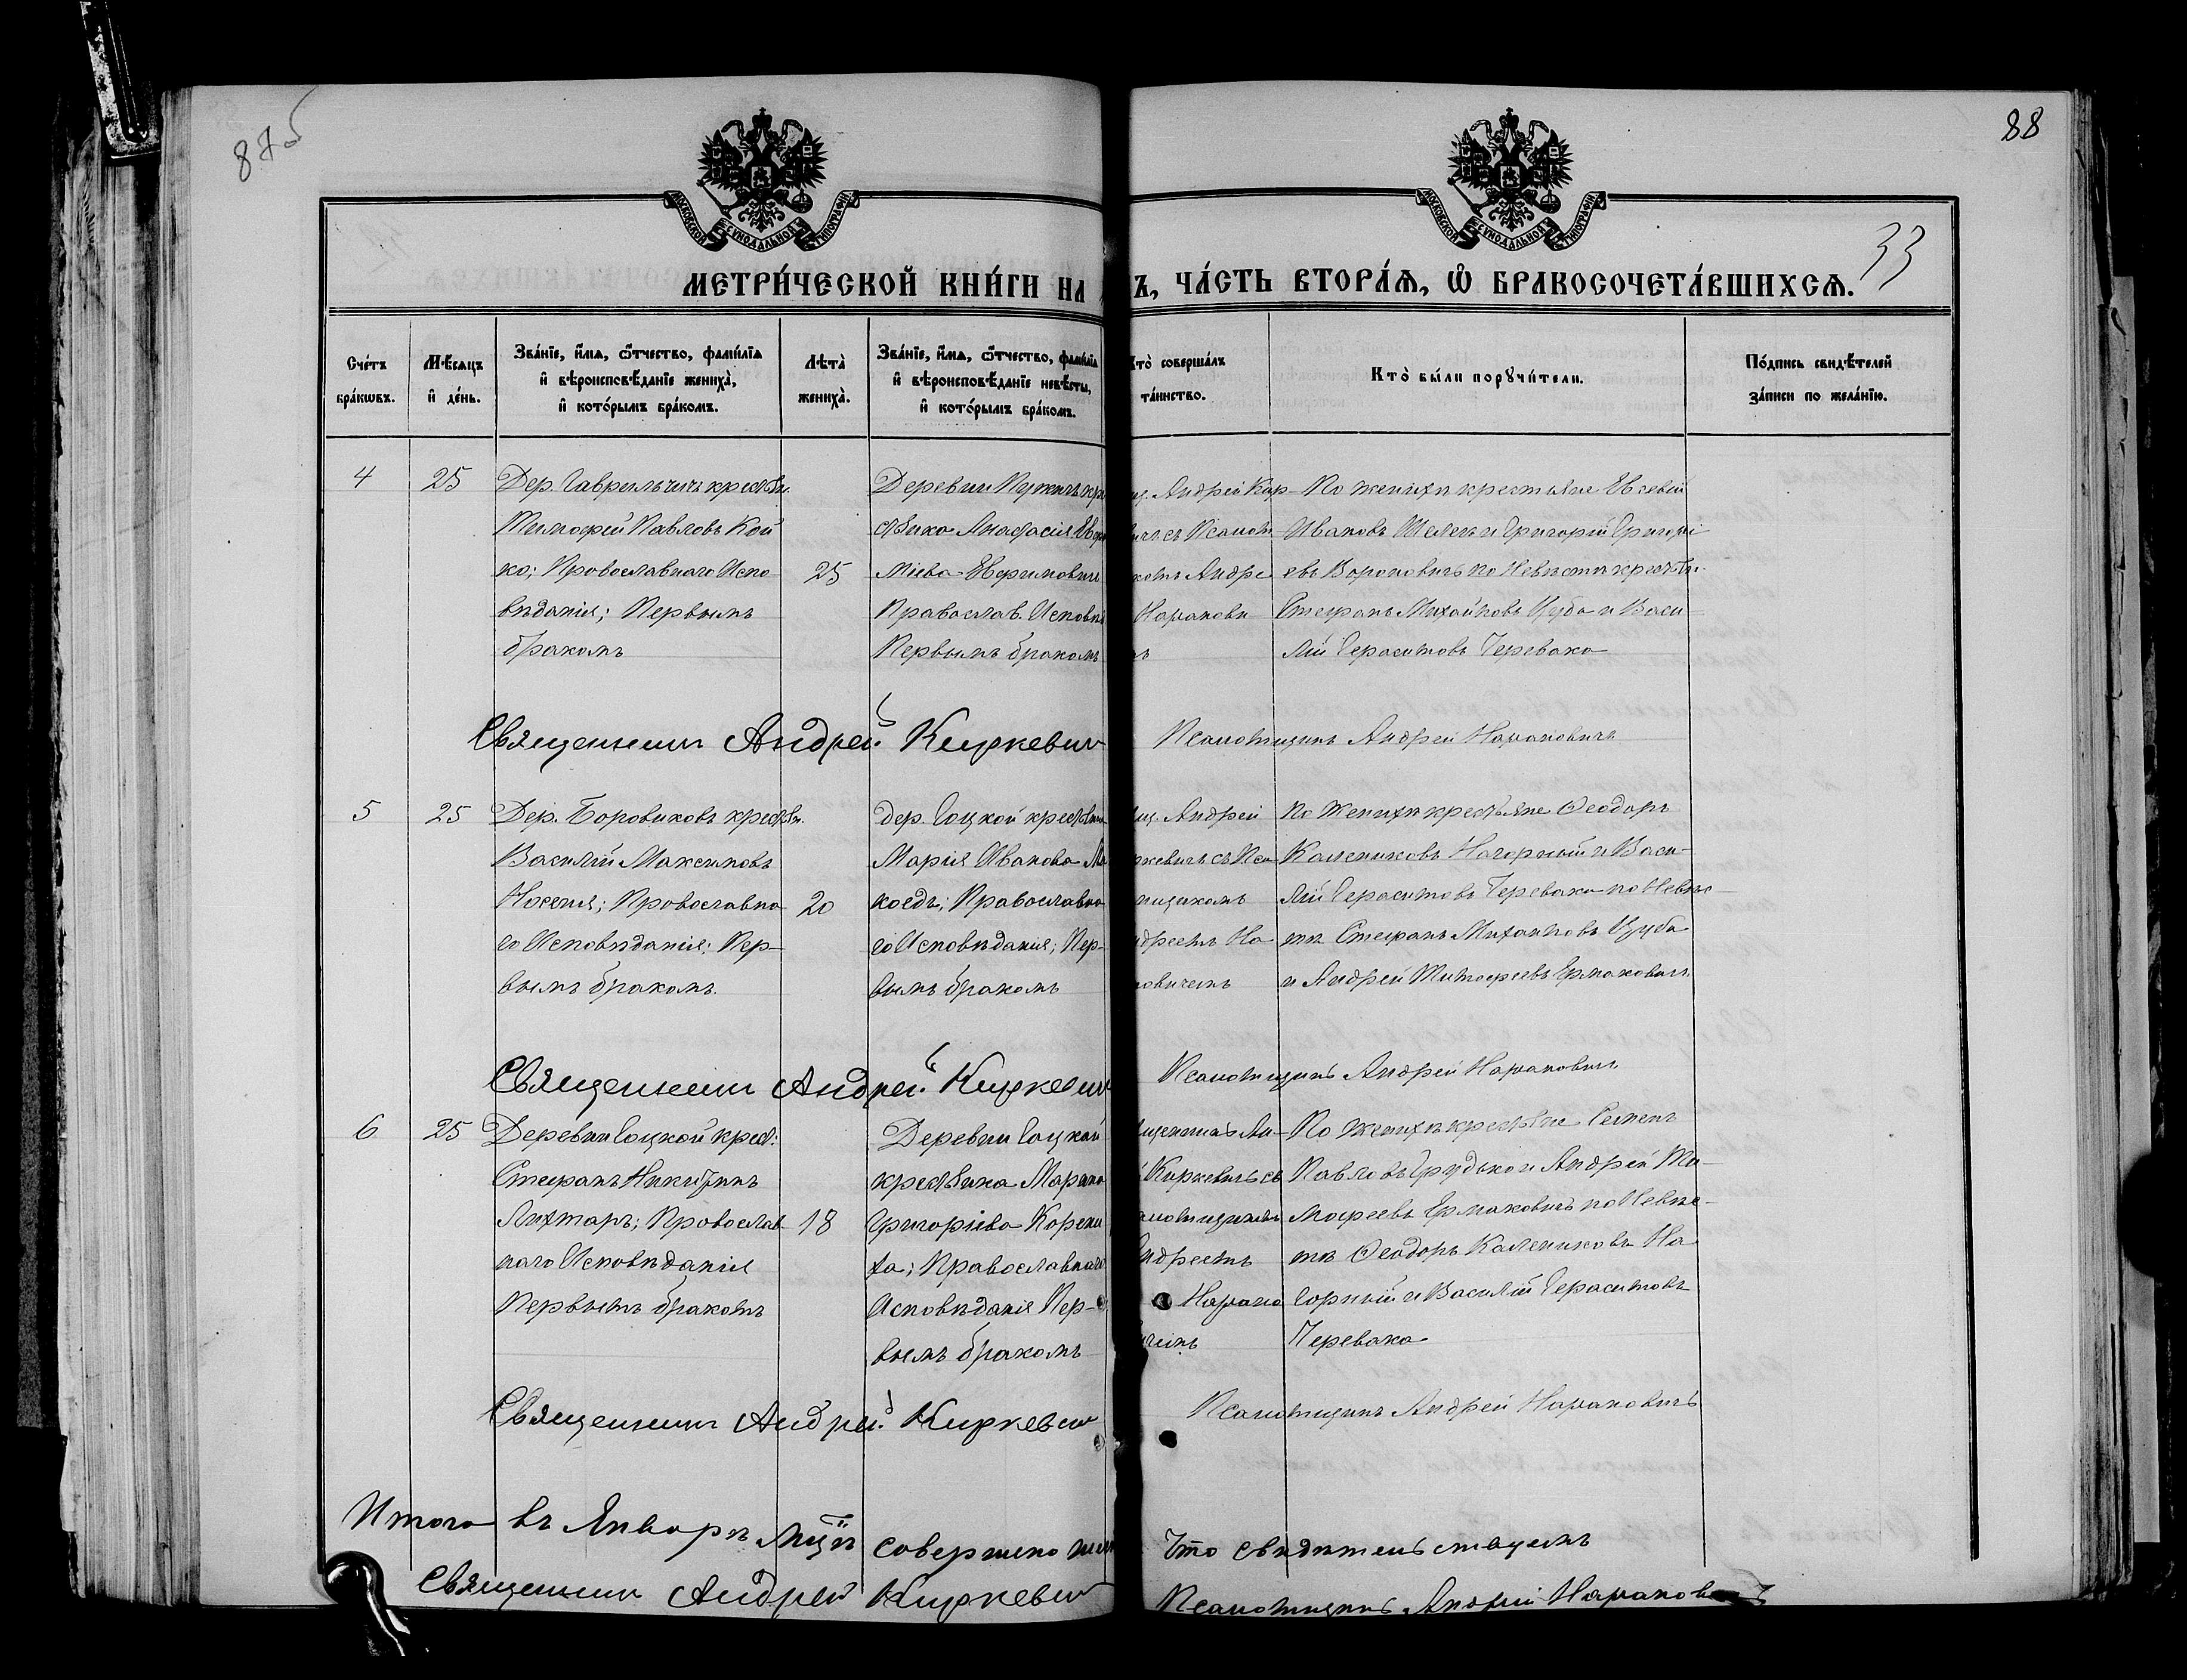 87об
88
33
МОСКОВСКОЙ СѴНОДАЛЬНОЙ ТИПОГРАФІИ
МОСКОВСКОЙ СѴНОДАЛЬНОЙ ТИПОГРАФІИ
МЕТРИ́ЧЕСКОЙ КНИ́ГИ НА
Ъ, ЧА́СТЬ ВТОРА́Ѧ, Ѽ БРАКОСОЧЕТА́ВШИХСѦ.
Сче́тъ бра́кѡвъ.
Мѣ́сяцъ и҆ де́нь.
Зва́нїе, и҆́мѧ, ѻ҆́тчество, фами́лїѧ и҆ вѣроисповѣ́данїе жениха̀, и҆ кото́рымъ бра́комъ.
Лѣта̀ жениха̀.
Зва́нїе, и҆́мѧ, ѻ҆́тчество, фами́лїѧ и҆ вѣроисповѣ́данїе невѣ́сты, и҆ кото́рымъ бра́комъ.
то̀ соверша́лъ та́инство.
Кто̀ бы́ли порꙋчи́тели.
По́дпись свидѣ́телей за́писи по жела́нїю.
4
25
Дер. Гаврильчичъ крестьян.
Тимофей Павловъ Кой
ко; Православнаго Испо
вѣданія; Первымъ
бракомъ
25
Деревни Пужичъ кре
стьянка Анастасія
міева Ефимович
Православ. Исповѣ
Первымъ бракомъ
Андрей Кир
съ Псалом
Андре
Наранови
По женихѣ крестьяне Евсевій
Ивановъ Шелег и Григорій Григорі
евъ Вороновичъ по Невѣстѣ крестьян.
Стефанъ Михайловъ Цуба и Васи
лій Герасимовъ Перевака
Священникъ Андрей Киркевич
Псаломщикъ Андрей Нарановичъ
5
25
Дер. Боровиковъ крестьян.
Василій Максимовъ
Носеня; Православна
го Исповѣданія; Пер
вымъ бракомъ.
20
Дер. Гоцкой крестьянка
Марія Иванова Ма
коедъ; Православна
го Исповѣданія; Пер
вымъ бракомъ
Андрей
ркевичъ съ Пса
мщикомъ
дреемъ На
новичемъ
По Женихѣ крестьяне Ѳеодоръ
Калениковъ Нагорный и Васи
лій Герасимовъ Перевака по Невѣс
тѣ Стефанъ Михайловъ Цуба
и Андрей Тимофеевъ Ермаковичъ
Священникъ Андрей Киркевич
Псаломщикъ Андрей Нарановичъ
6
25
Деревни Гоцкой крест:
Стефанъ Никитинъ
Лихтаръ; Православ
наго Исповѣданія
Первымъ бракомъ
18
Деревни Гоцкой
крестьянка Марина
Григоріева Корени
ха; Православнаго
Исповѣданія Пер
вымъ бракомъ
щенникъ Ан
Киркевичъ съ
аломщикомъ
ндреемъ
Нарано
чемъ
По женихѣ крестьяне Семенъ
Павловъ Грудько и Андрей Ти
мофеевъ Ермаковичъ по Невѣс
тѣ Ѳеодоръ Калениковъ На
горный и Василій Герасимовъ
Перевака
Священникъ Андрей Киркевич
Псаломщикъ Андрей Нарановичъ
Итого въ Январѣ мцѣ совершено
Что свидѣтельствуемъ
Священникъ Андрей Киркевич
Псаломщикъ Андрей Нарановичъ